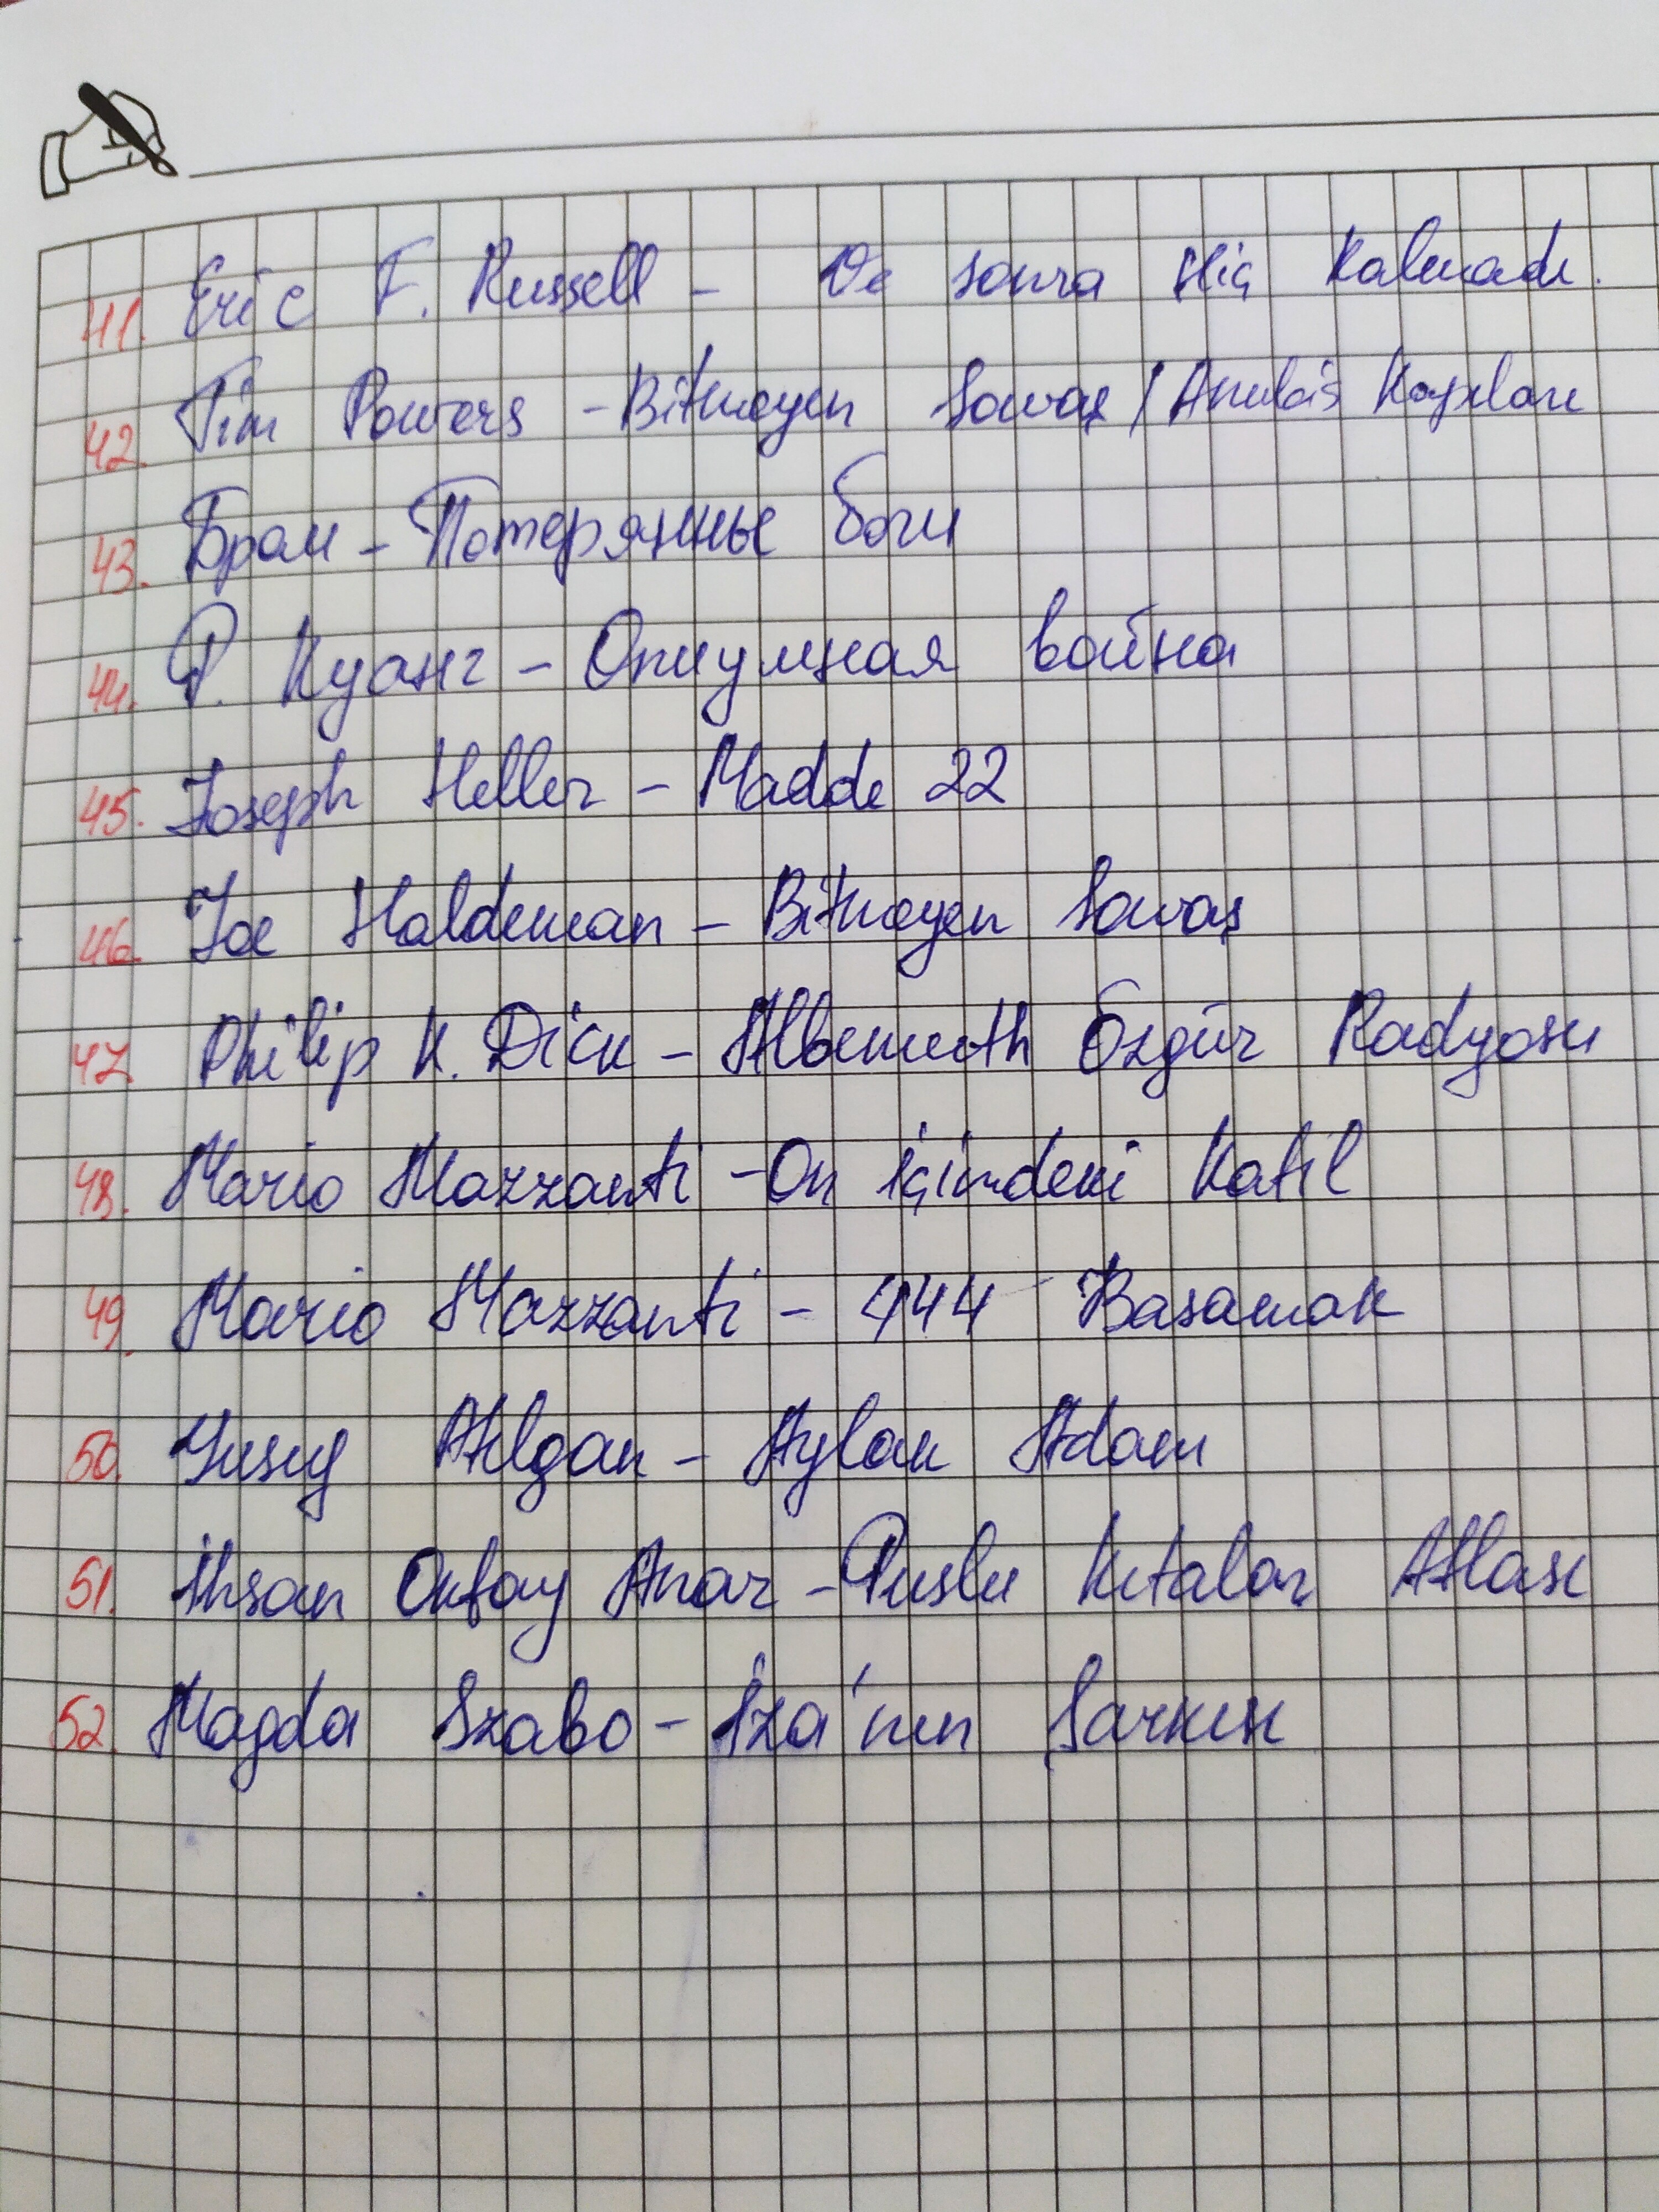 41. Eric F. Russell - Ve sonra Hiç Kalmadı.
42. Tim Powers - Bitmeyen Savaş / Anubis Kapıları
43. Бром - Потерянные боги
44. Р. Куанг - Опиумная война
45. Joseph Heller - Madde 22
46. Joe Haldeman - Bitmeyen Savaş
47. Philip K. Dick - Albemuth Özgür Radyosu
48. Mario Mazzanti - On içimdeki Katil
49. Mario Mazzanti - 444 Basamak
50. Yusuf Atılgan - Aylak Adam
51. İhsan Oktay Anar - Puslu Kıtalar Atlası
52. Magda Szabo - İza'nın Şarkısı